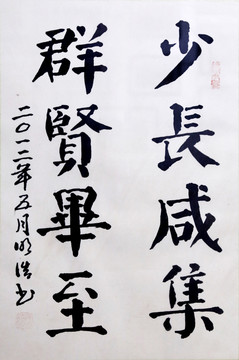 少長咸集
群賢畢至
二〇一二年五月明浩书